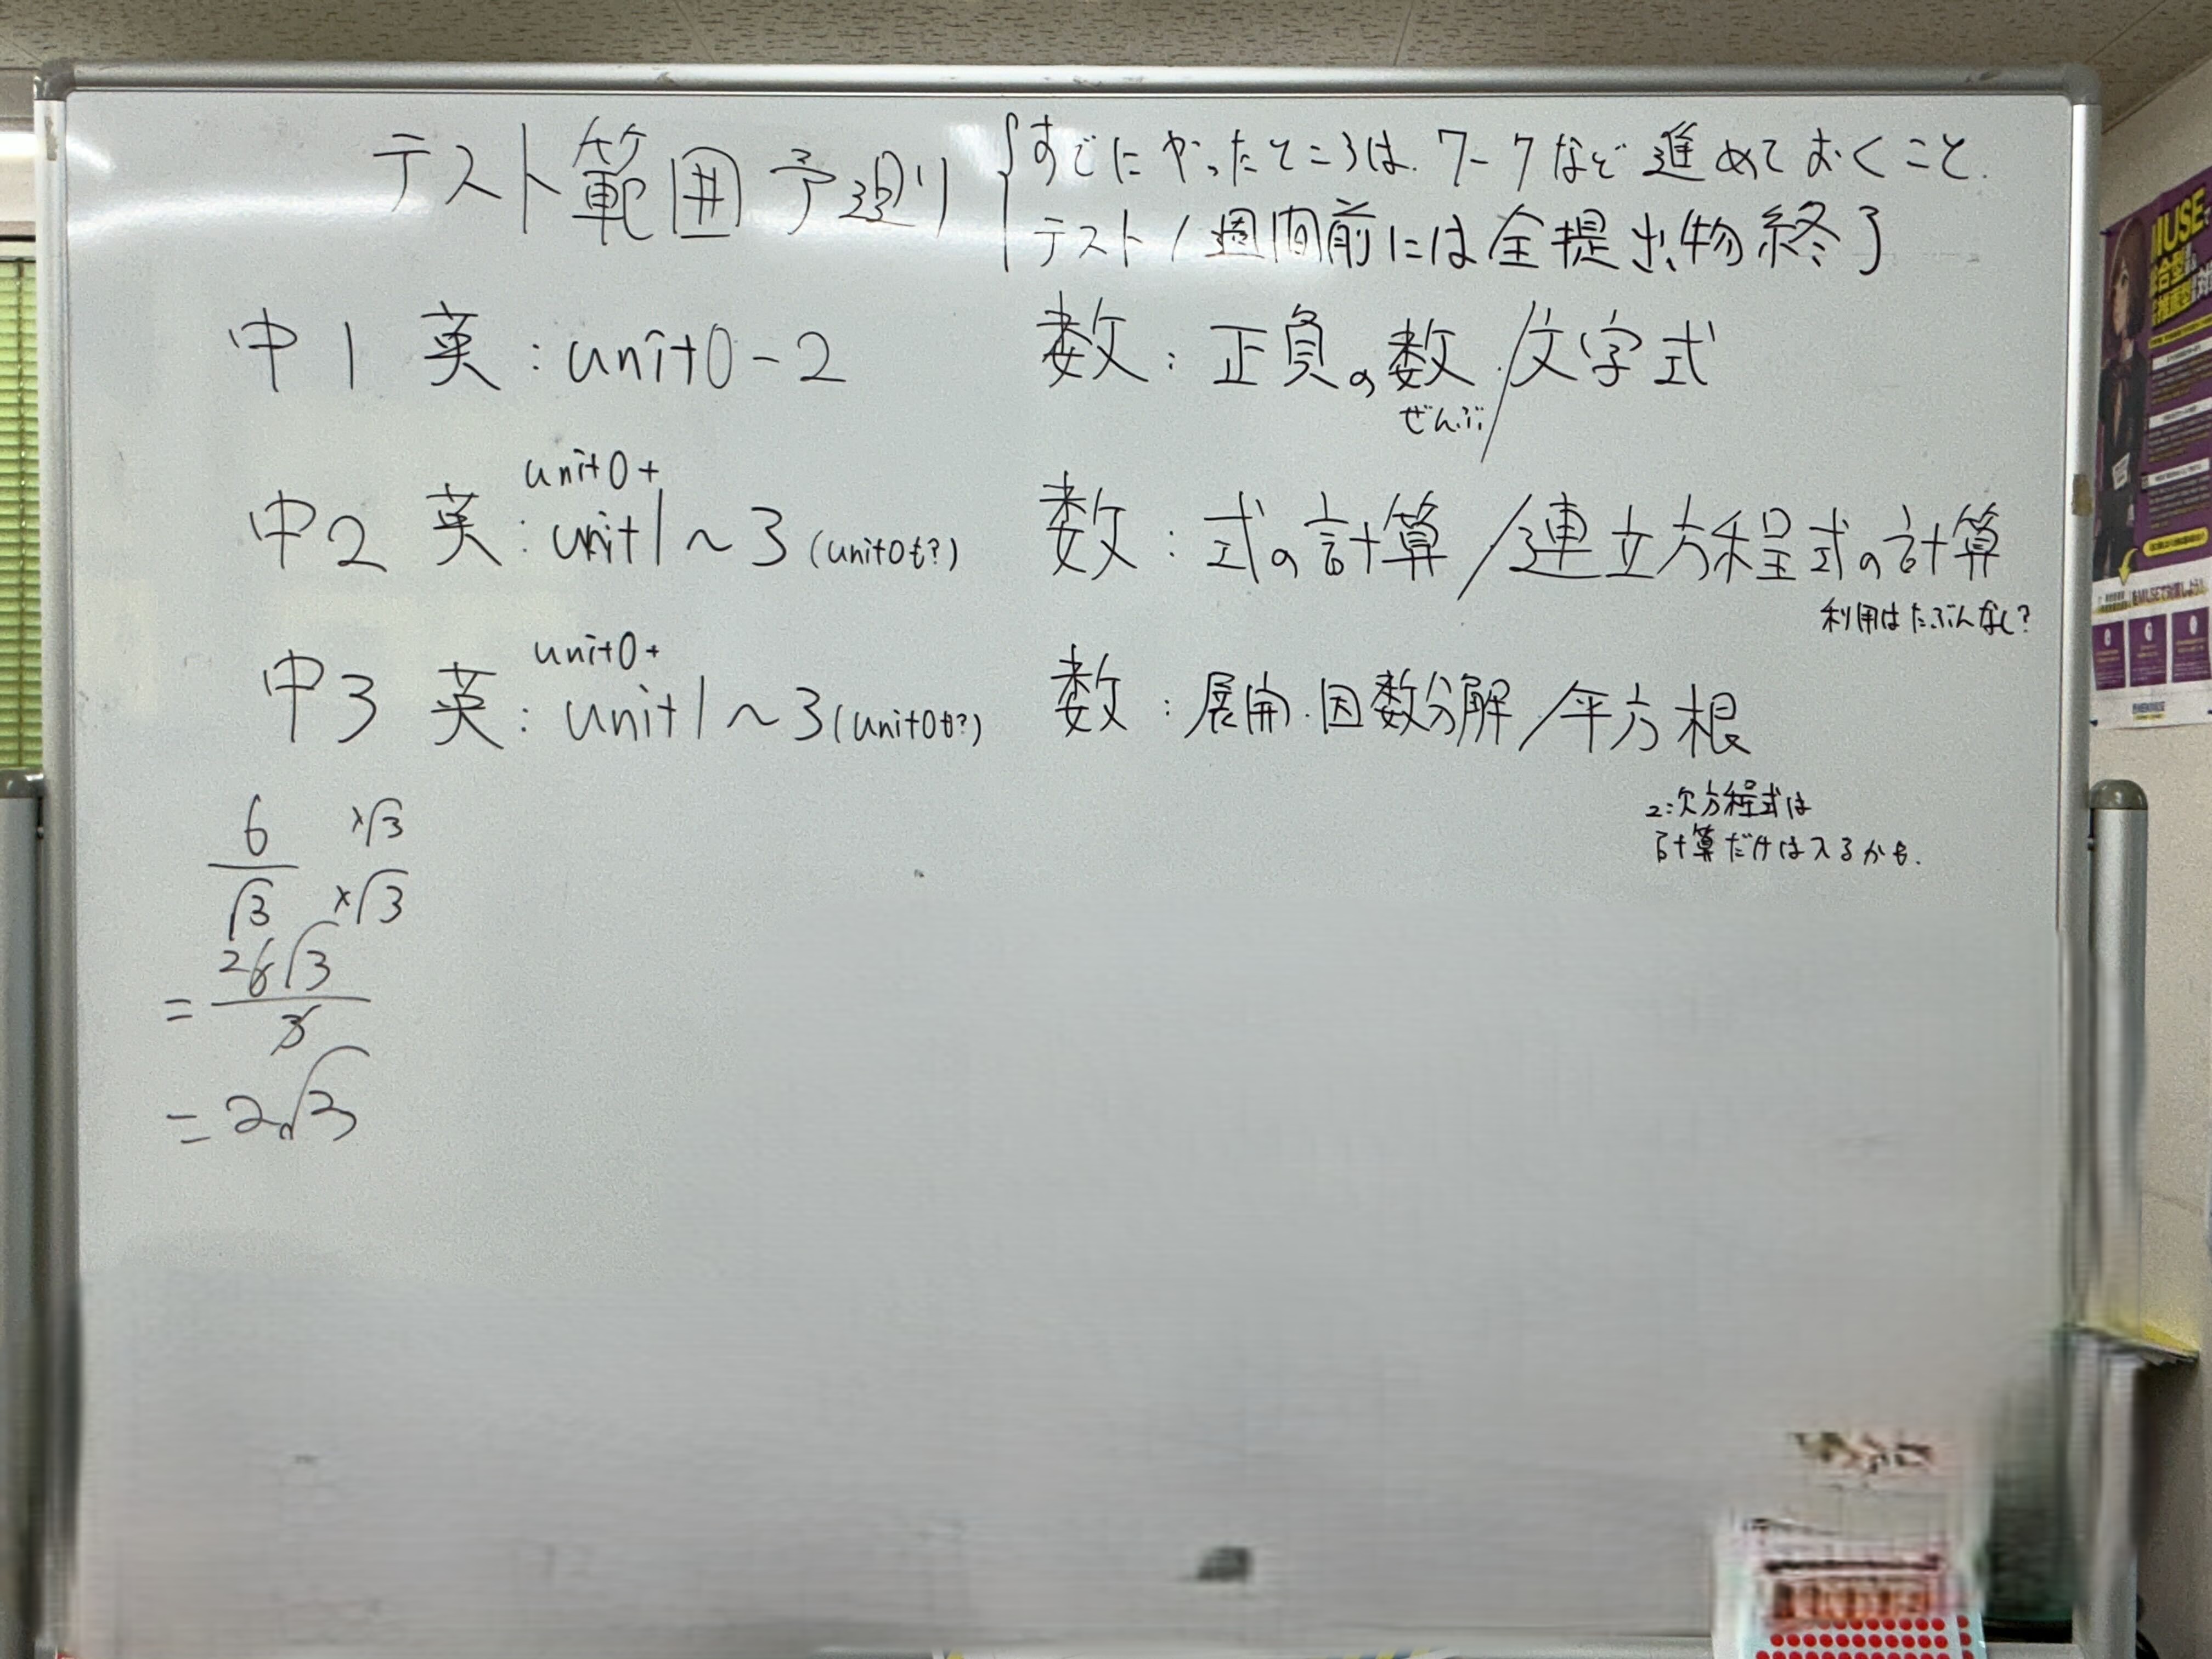 テスト範囲予測
すでにやったところは、ワークなど進めておくこと.
テスト1週間前には全提出物終了
中1 英:unit0-2 数:正負の数/文字式
ぜんぶ
unit0+
中2 英:unit1~3(unit0も?) 数:式の計算/連立方程式の計算
利用はたぶんなし?
unit0+
中3 英:unit1~3(unit0も?) 数:展開・因数分解/平方根
2次方程式は
計算だけは入るかも.
6 ×√3
√3 ×√3
= 2 6√3
3
= 2√3
MUSE